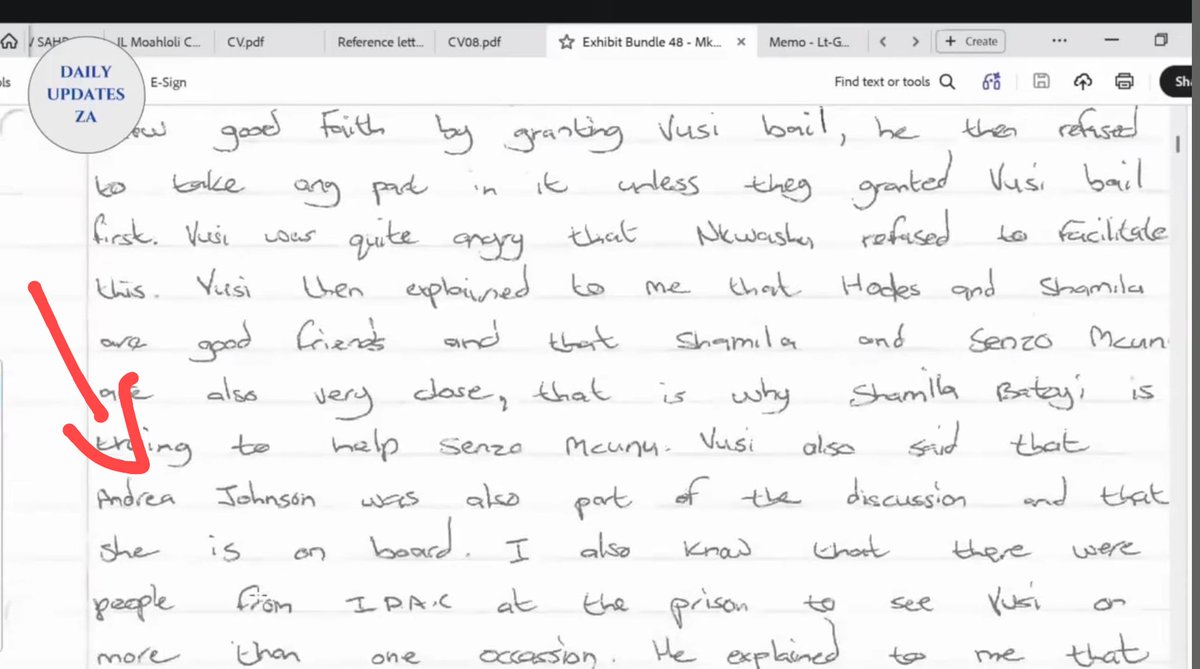 SAHP
JL Moahloli C...
CV.pdf
Reference lett...
CV08.pdf
Exhibit Bundle 48 - Mk...
Memo - Lt-G...
Create
DAILY
UPDATES
ZA
E-Sign
Find text or tools
good Faith by granting Vusi bail, he then refused
to take any part in it unless they granted Vusi bail
first. Vusi was quite angry that Nkwashu refused to facilitate
this. Vusi then explained to me that Hodes and Shamila
are good friends and that Shamila and Senzo Mcun
are also very close, that is why Shamilla Batoyi is
trying to help Senzo Mcunu. Vusi also said that
Andrea Johnson was also part of the discussion and that
she is on board. I also know that there were
people from I.D.A.C at the prison to see Vusi on
more than one occassion. He explained to me that